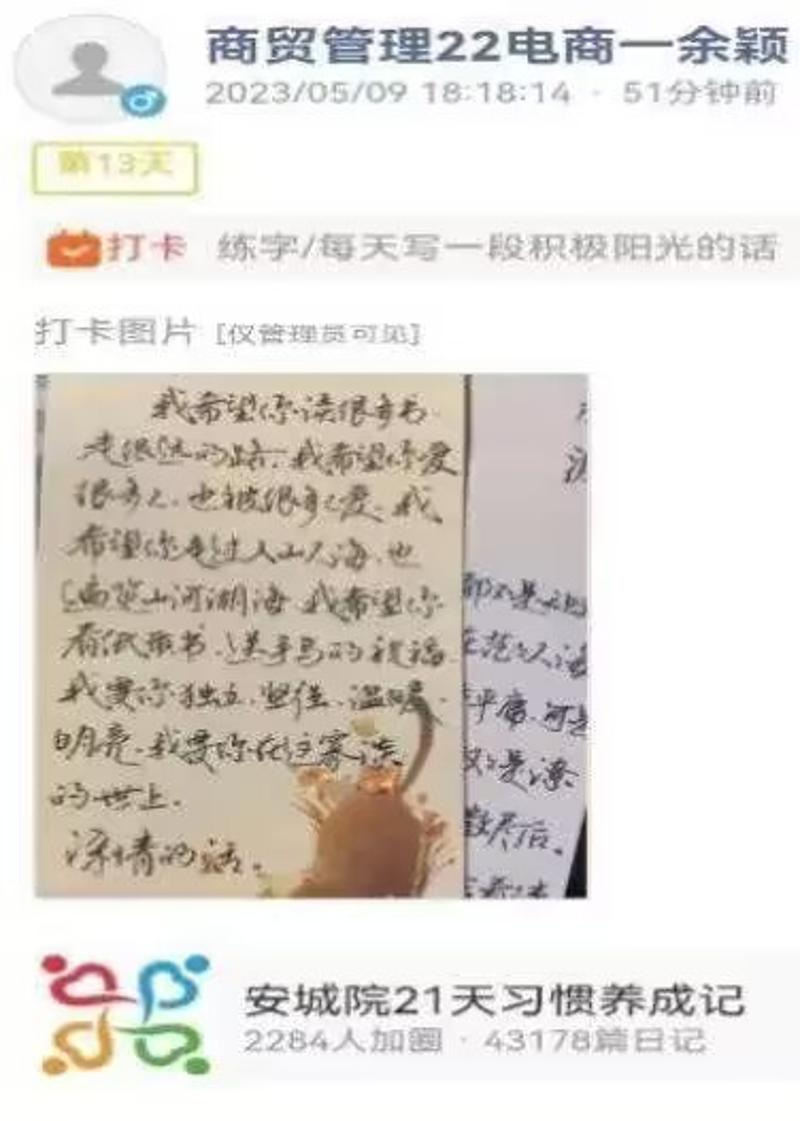 商贸管理22电商一余颖
2023/05/09 18:18:14 · 51分钟前
第13天
打卡 练字/每天写一段积极阳光的话
打卡图片 [仅管理员可见]
我希望你读很多书
走很远的路.我希望你爱
很多人.也被很多人爱.我
希望你走过人山人海.也
遍览山河湖海.我希望你
看纸质书.送手写的祝福.
我要你独立.坚强.温暖.
明亮.我要你在这寡淡
的世上.
深情的活.
都不是
平庸.可是
又是潦
散尽后.
安城院21天习惯养成记
2284人加圈 · 43178篇日记